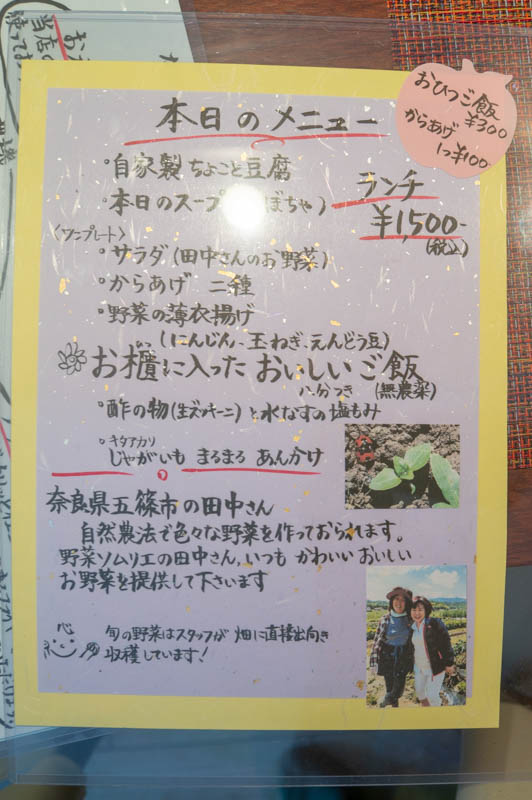 本日のメニュー
おひつご飯
¥300
からあげ
1つ¥100
・自家製ちょこっと豆腐
・本日のスープ ぼちゃ)
ランチ
¥1,500-
(税込)
〈ワンプレート〉
・サラダ(田中さんのお野菜)
・からあげ 二種
・野菜の薄衣揚げ
(にんじん、玉ねぎ、えんどう豆)
お櫃に入った おいしいご飯
八分つき (無農薬)
・酢の物(生ズッキーニ)と水なすの塩もみ
キタアカリ
・じゃがいも まるまる あんかけ
奈良県五篠市の田中さん
自然農法で色々な野菜を作っておられます。
野菜ソムリエの田中さん、いつも かわいい おいしい
お野菜を提供して下さいます
旬の野菜はスタッフが 畑に直接出向き
収穫しています!